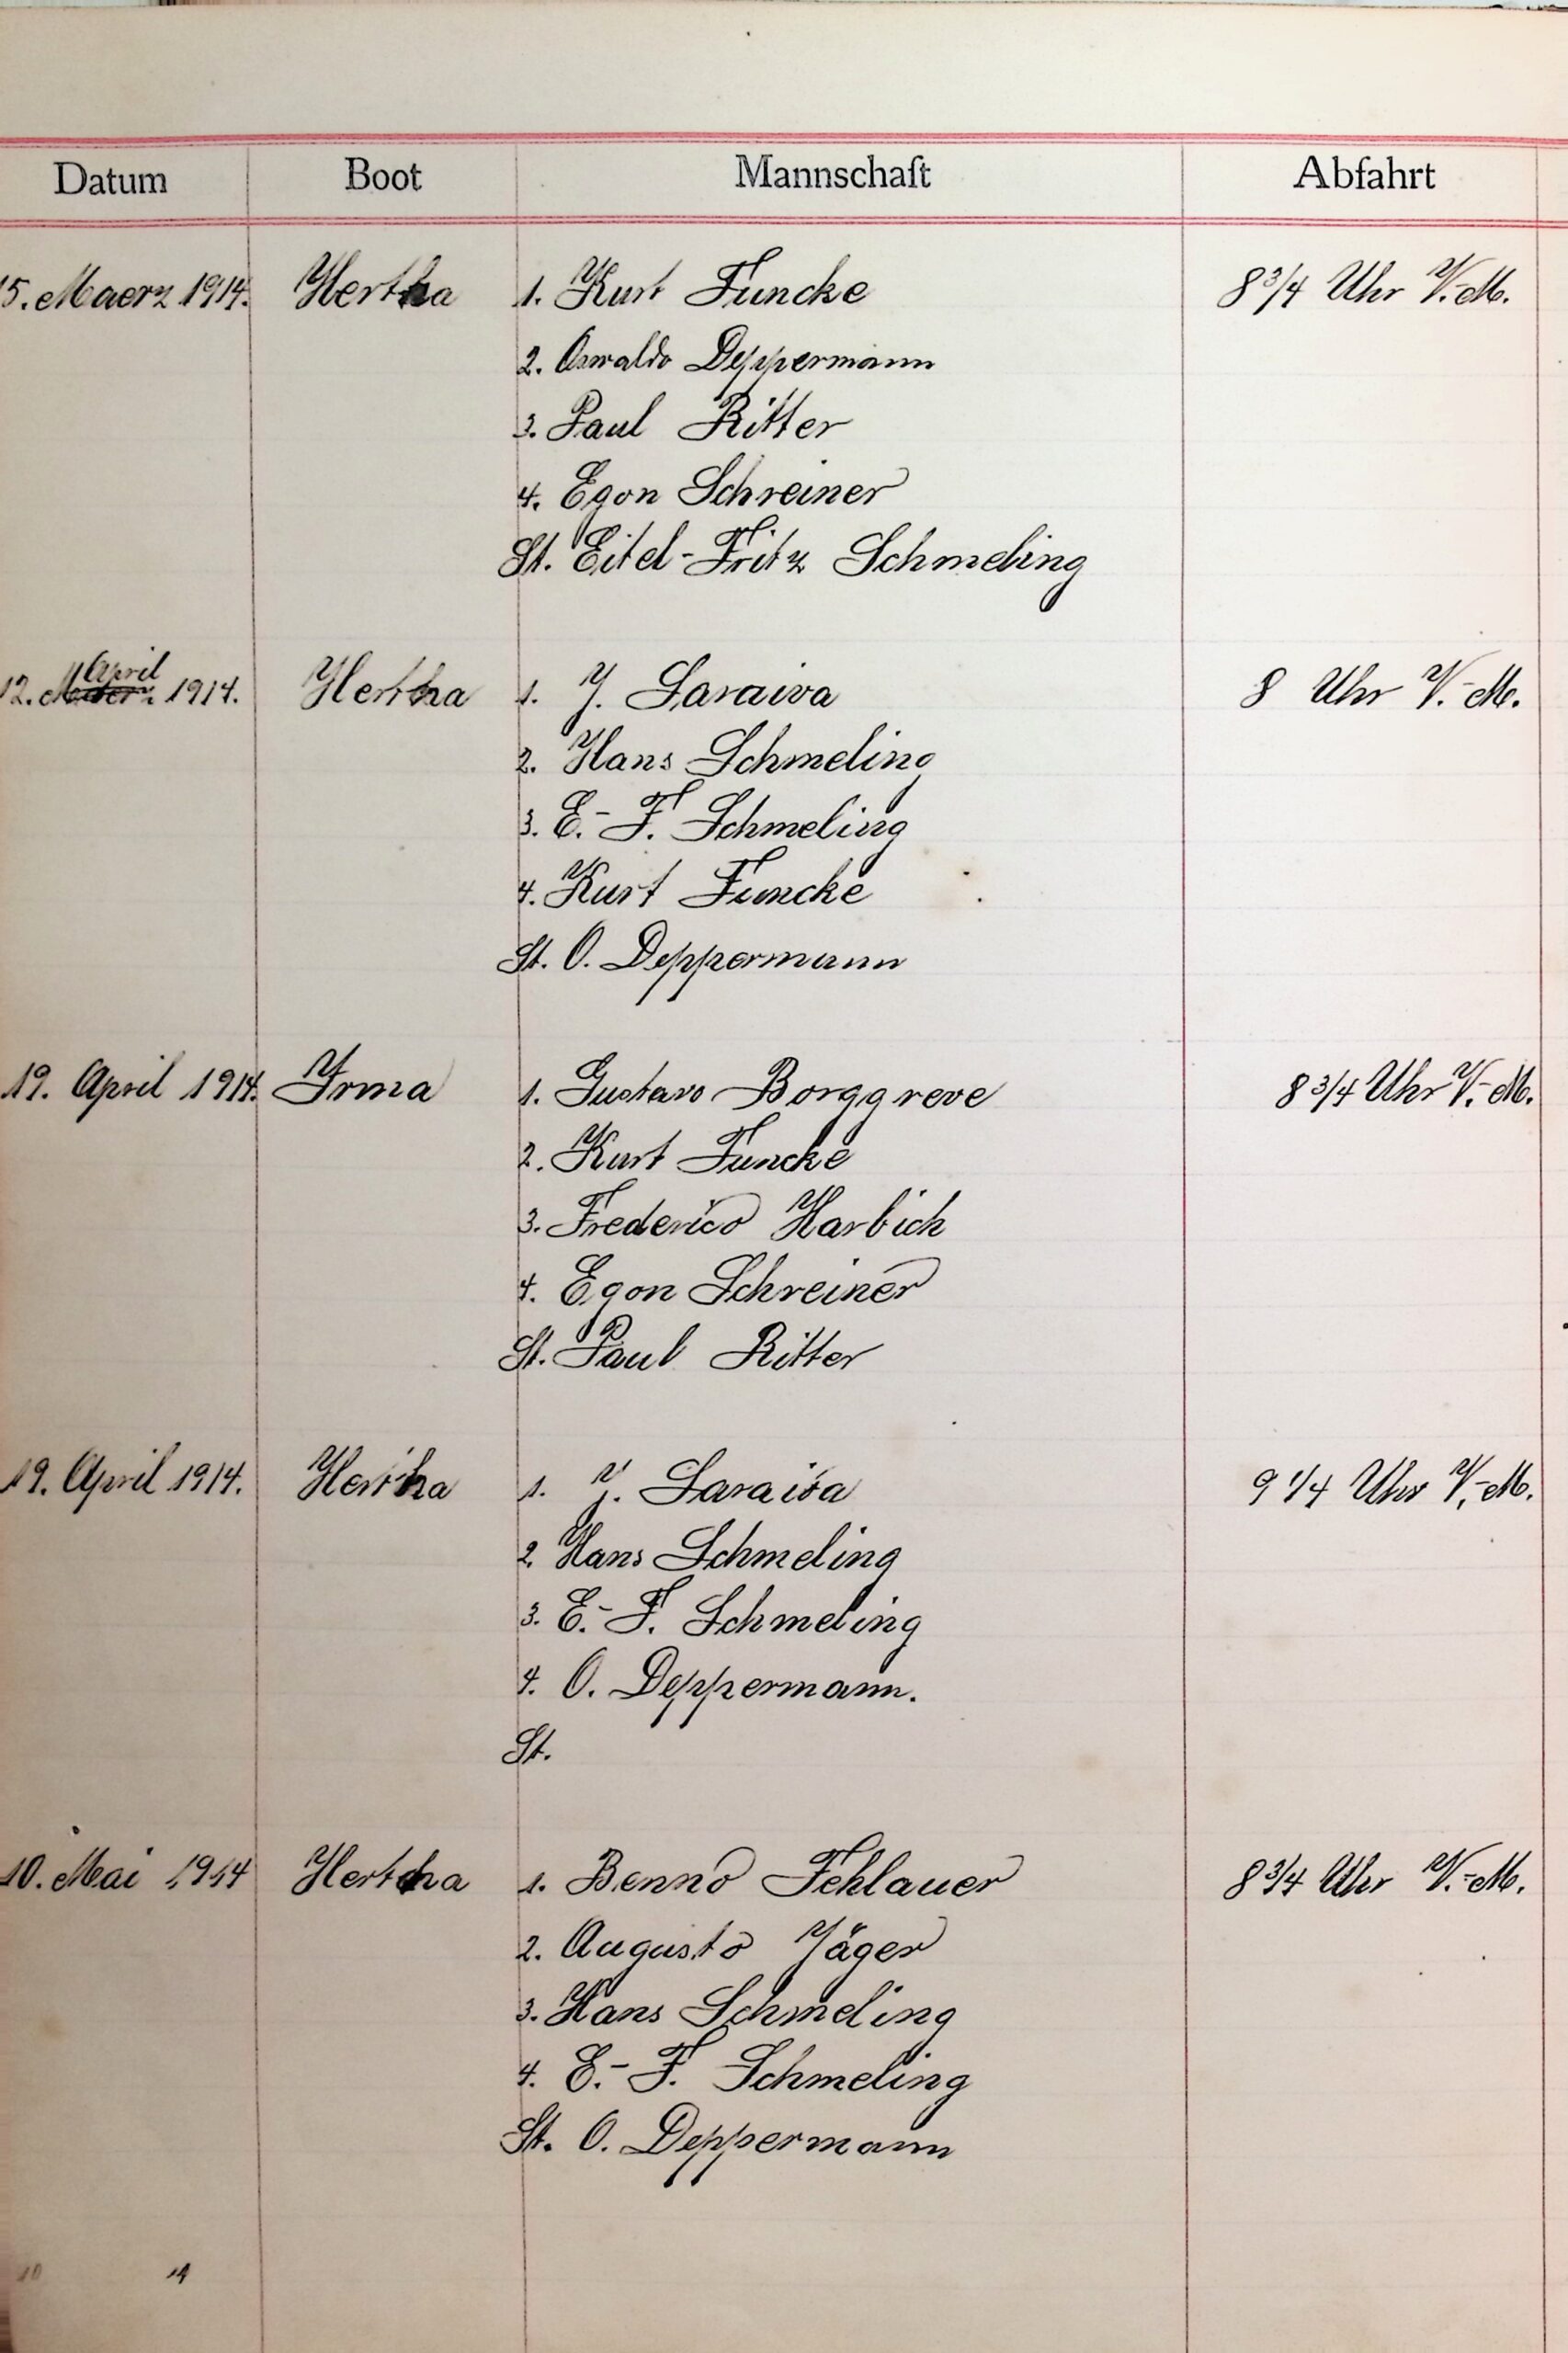 Datum Boot Mannschaft Abfahrt
15. Maerz 1914. Hertha 1. Kurt Funcke 8 3/4 Uhr V.-M.
2. Oswaldo Deppermann
3. Paul Ritter
4. Egon Schreiner
St. Eitel-Fritz Schmeling
April
12. Maerz 1914. Hertha 1. J. Saraiva 8 Uhr V.-M.
2. Hans Schmeling
3. E.-F. Schmeling
4. Kurt Funcke
St. O. Deppermann
19. April 1914. Irma 1. Gustavo Borggreve 8 3/4 Uhr V.-M.
2. Kurt Funcke
3. Frederico Harbich
4. Egon Schreiner
St. Paul Ritter
19. April 1914. Hertha 1. J. Saraiva 9 1/4 Uhr V.-M.
2. Hans Schmeling
3. E.-F. Schmeling
4. O. Deppermann.
St.
10. Mai 1914 Hertha 1. Benno Fehlauer 8 3/4 Uhr V.-M.
2. Augusto Jäger
3. Hans Schmeling
4. E.-F. Schmeling
St. O. Deppermann